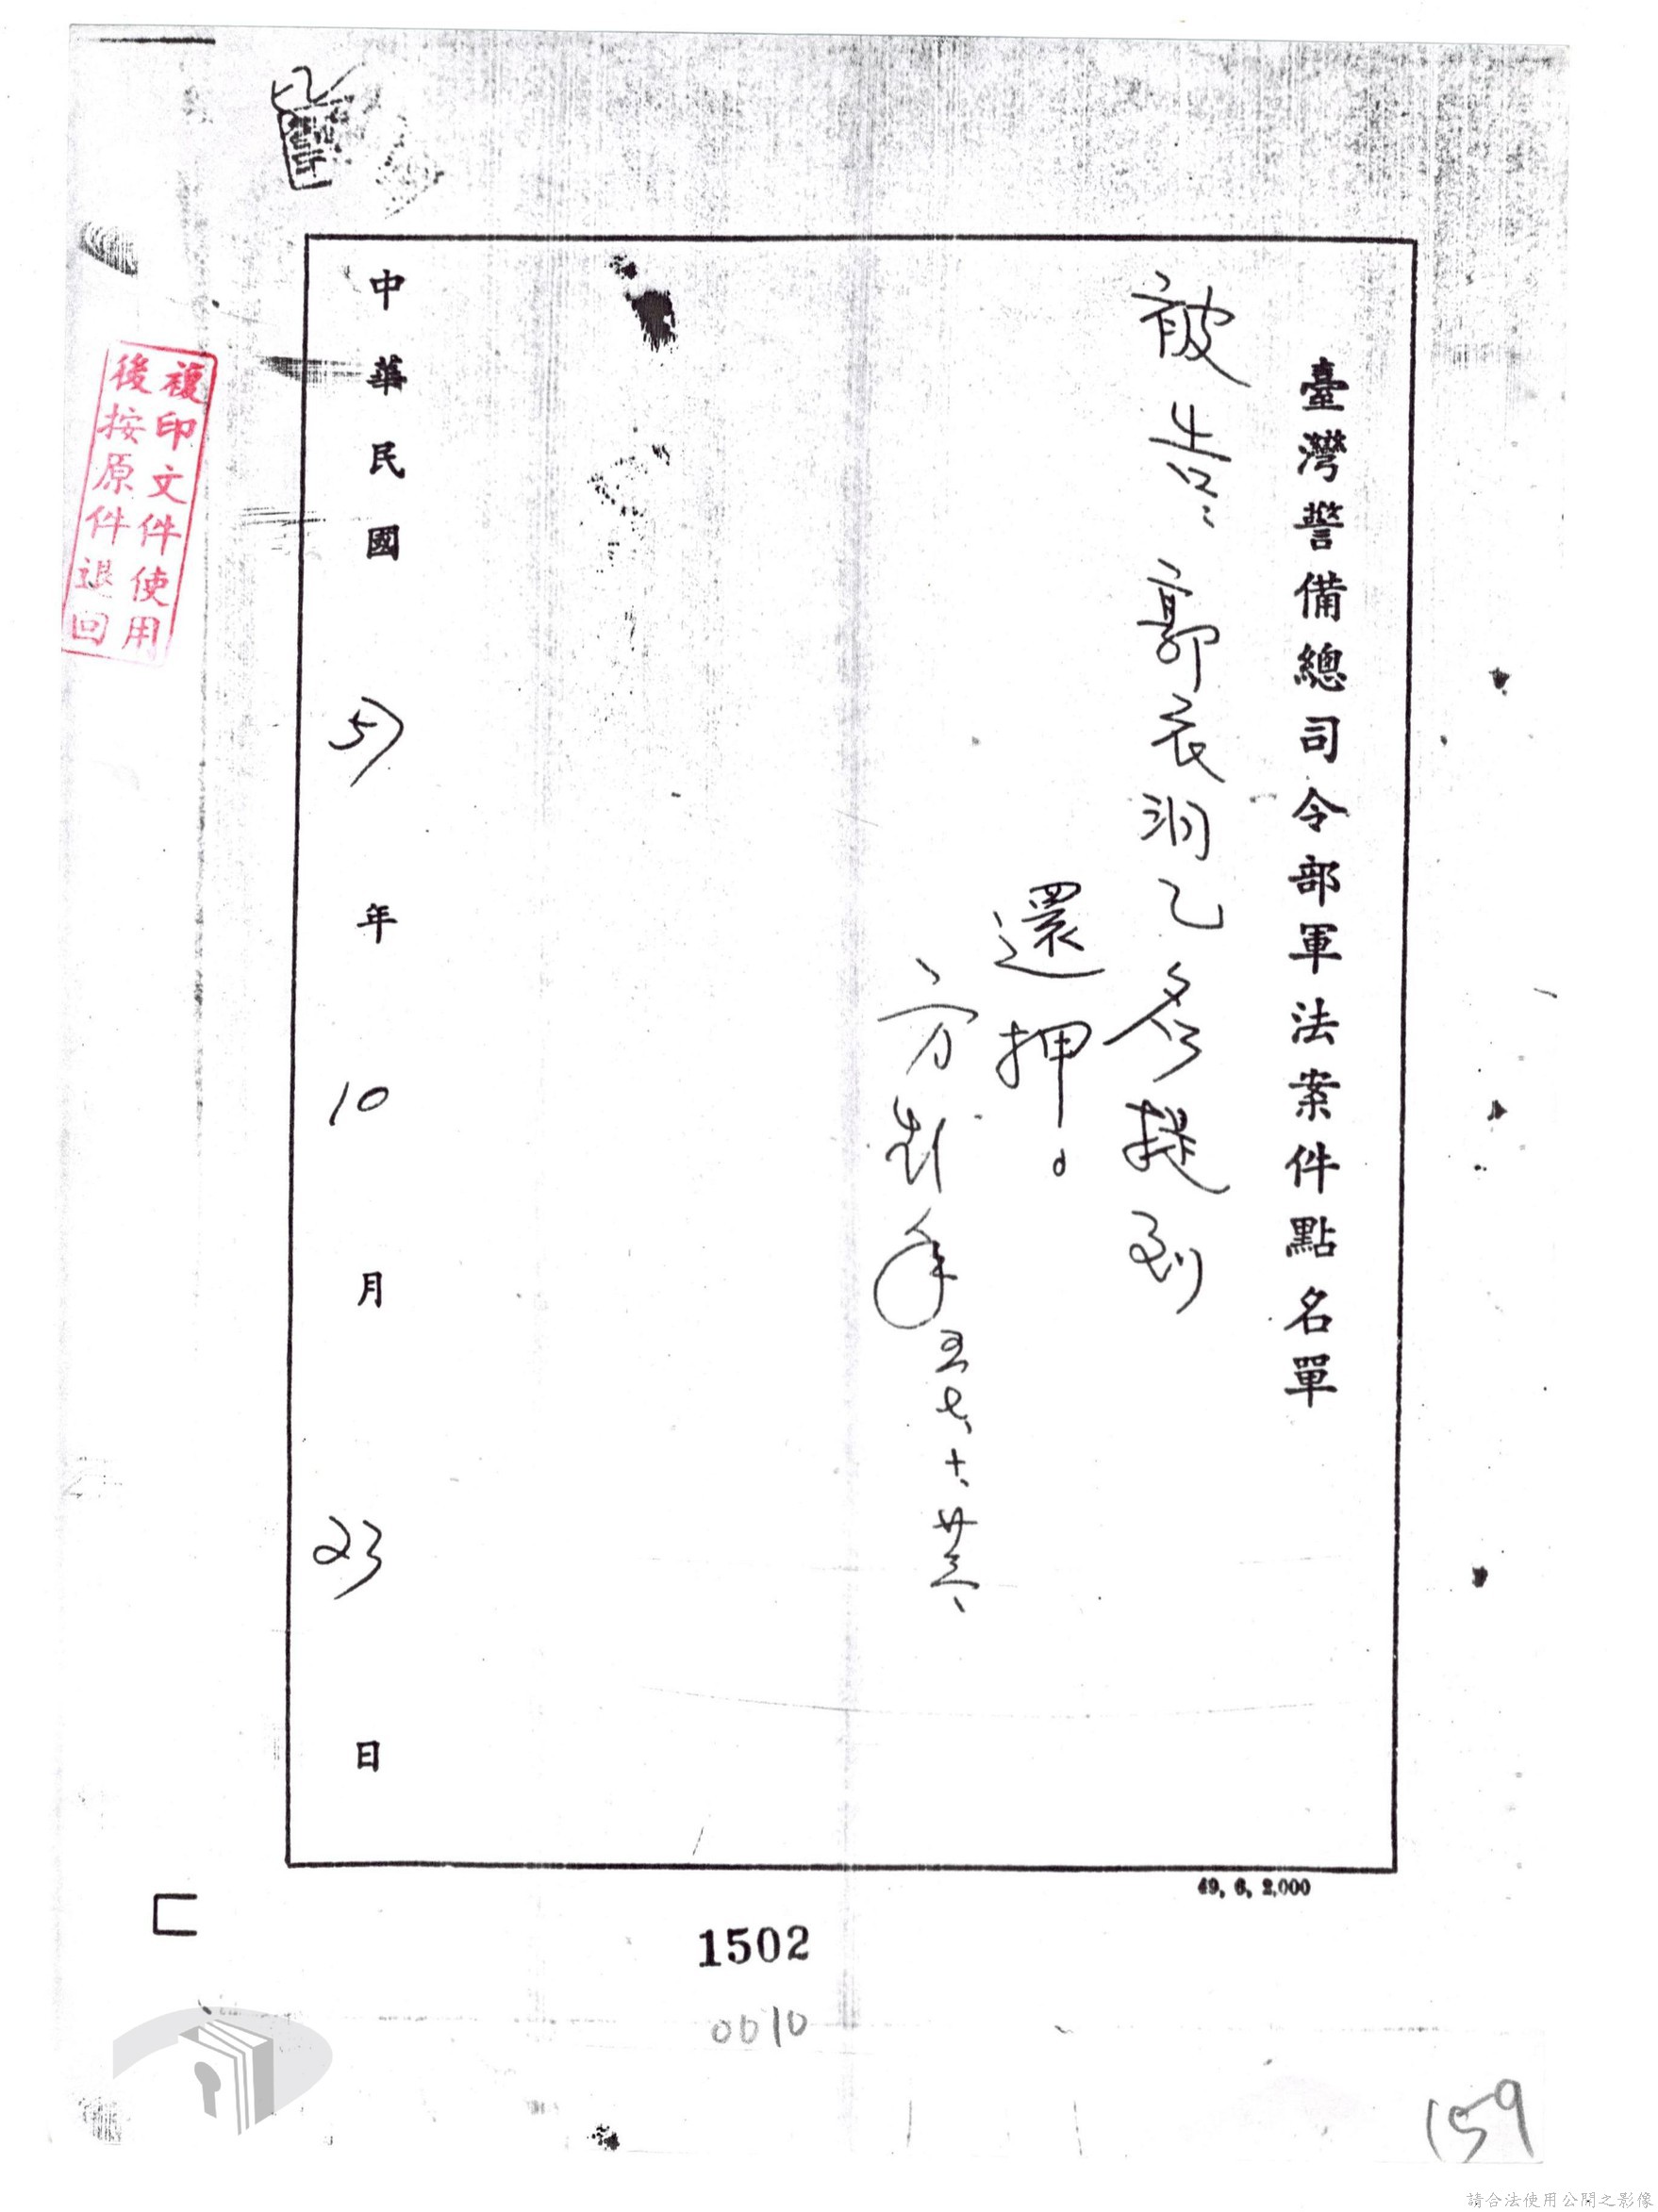 臺灣警備總司令部軍法案件點名單
被告、郭衣洞乙名提到
還押。
五七、十、廿三、
中華民國57年10月23日
複印文件使用
後按原件退回
49, 6, 2,000
1502
0010
159
請合法使用公開之影像